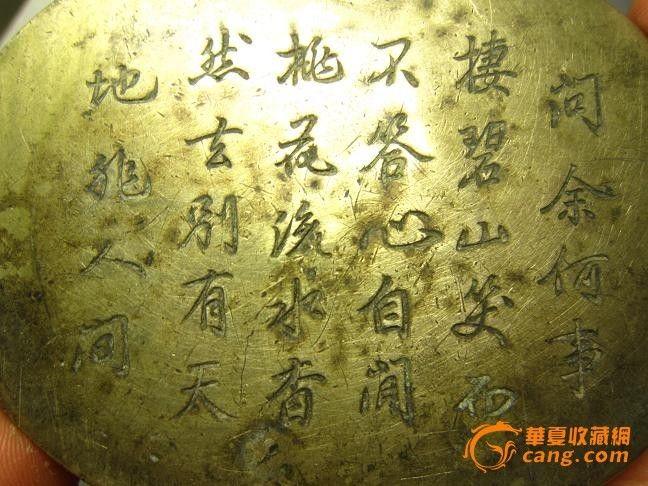 问余何事
棲碧山笑而
不答心自闲
桃花流水杳
然去别有天
地非人间
華夏收藏網
cang.com